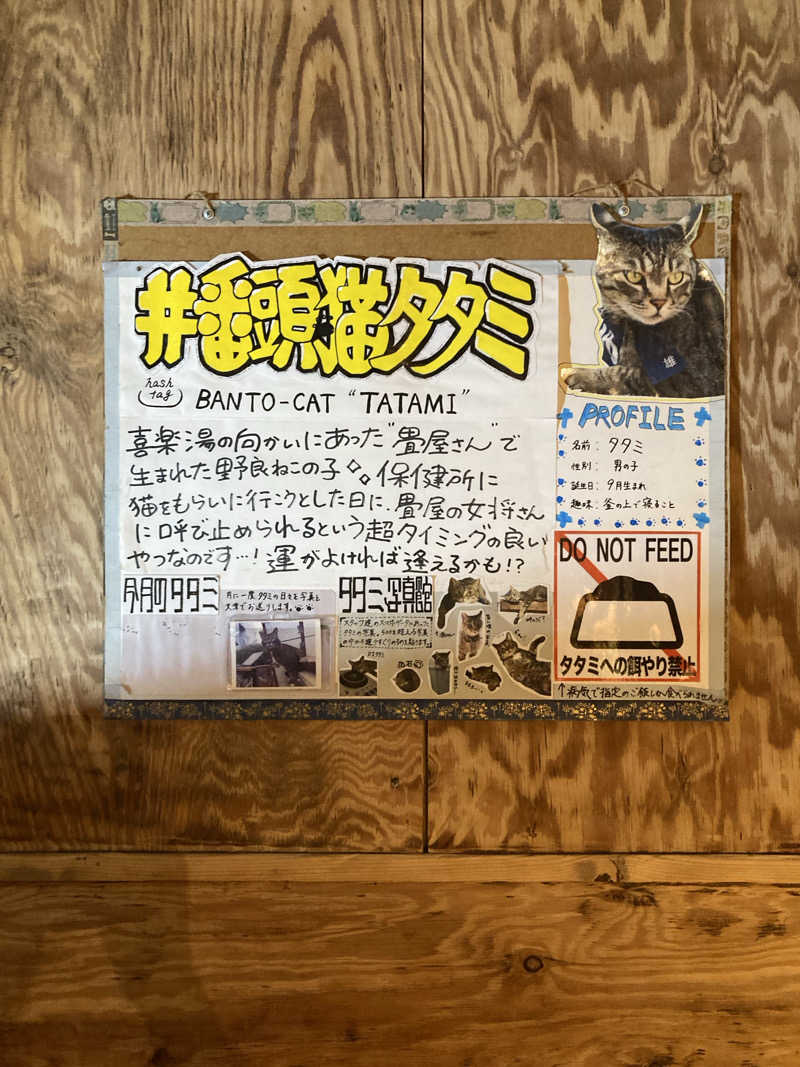 #番頭猫タタミ
hash
tag
BANTO-CAT "TATAMI"
喜楽湯の向かいにあった"畳屋さん"で
生まれた野良ねこの子。保健所に
猫をもらいに行こうとした日に、畳屋の女将さん
に呼び止められるという超タイミングの良い
やつなのです…!運がよければ逢えるかも!?
PROFILE
名前:タタミ
性別:男の子
誕生日:9月生まれ
趣味:釜の上で寝ること
DO NOT FEED
タタミへの餌やり禁止
↑病気で指定のご飯しか食べられません
今月のタタミ
月に一度タタミの日々を写真と
文章でお送りします。
タタミ写真館